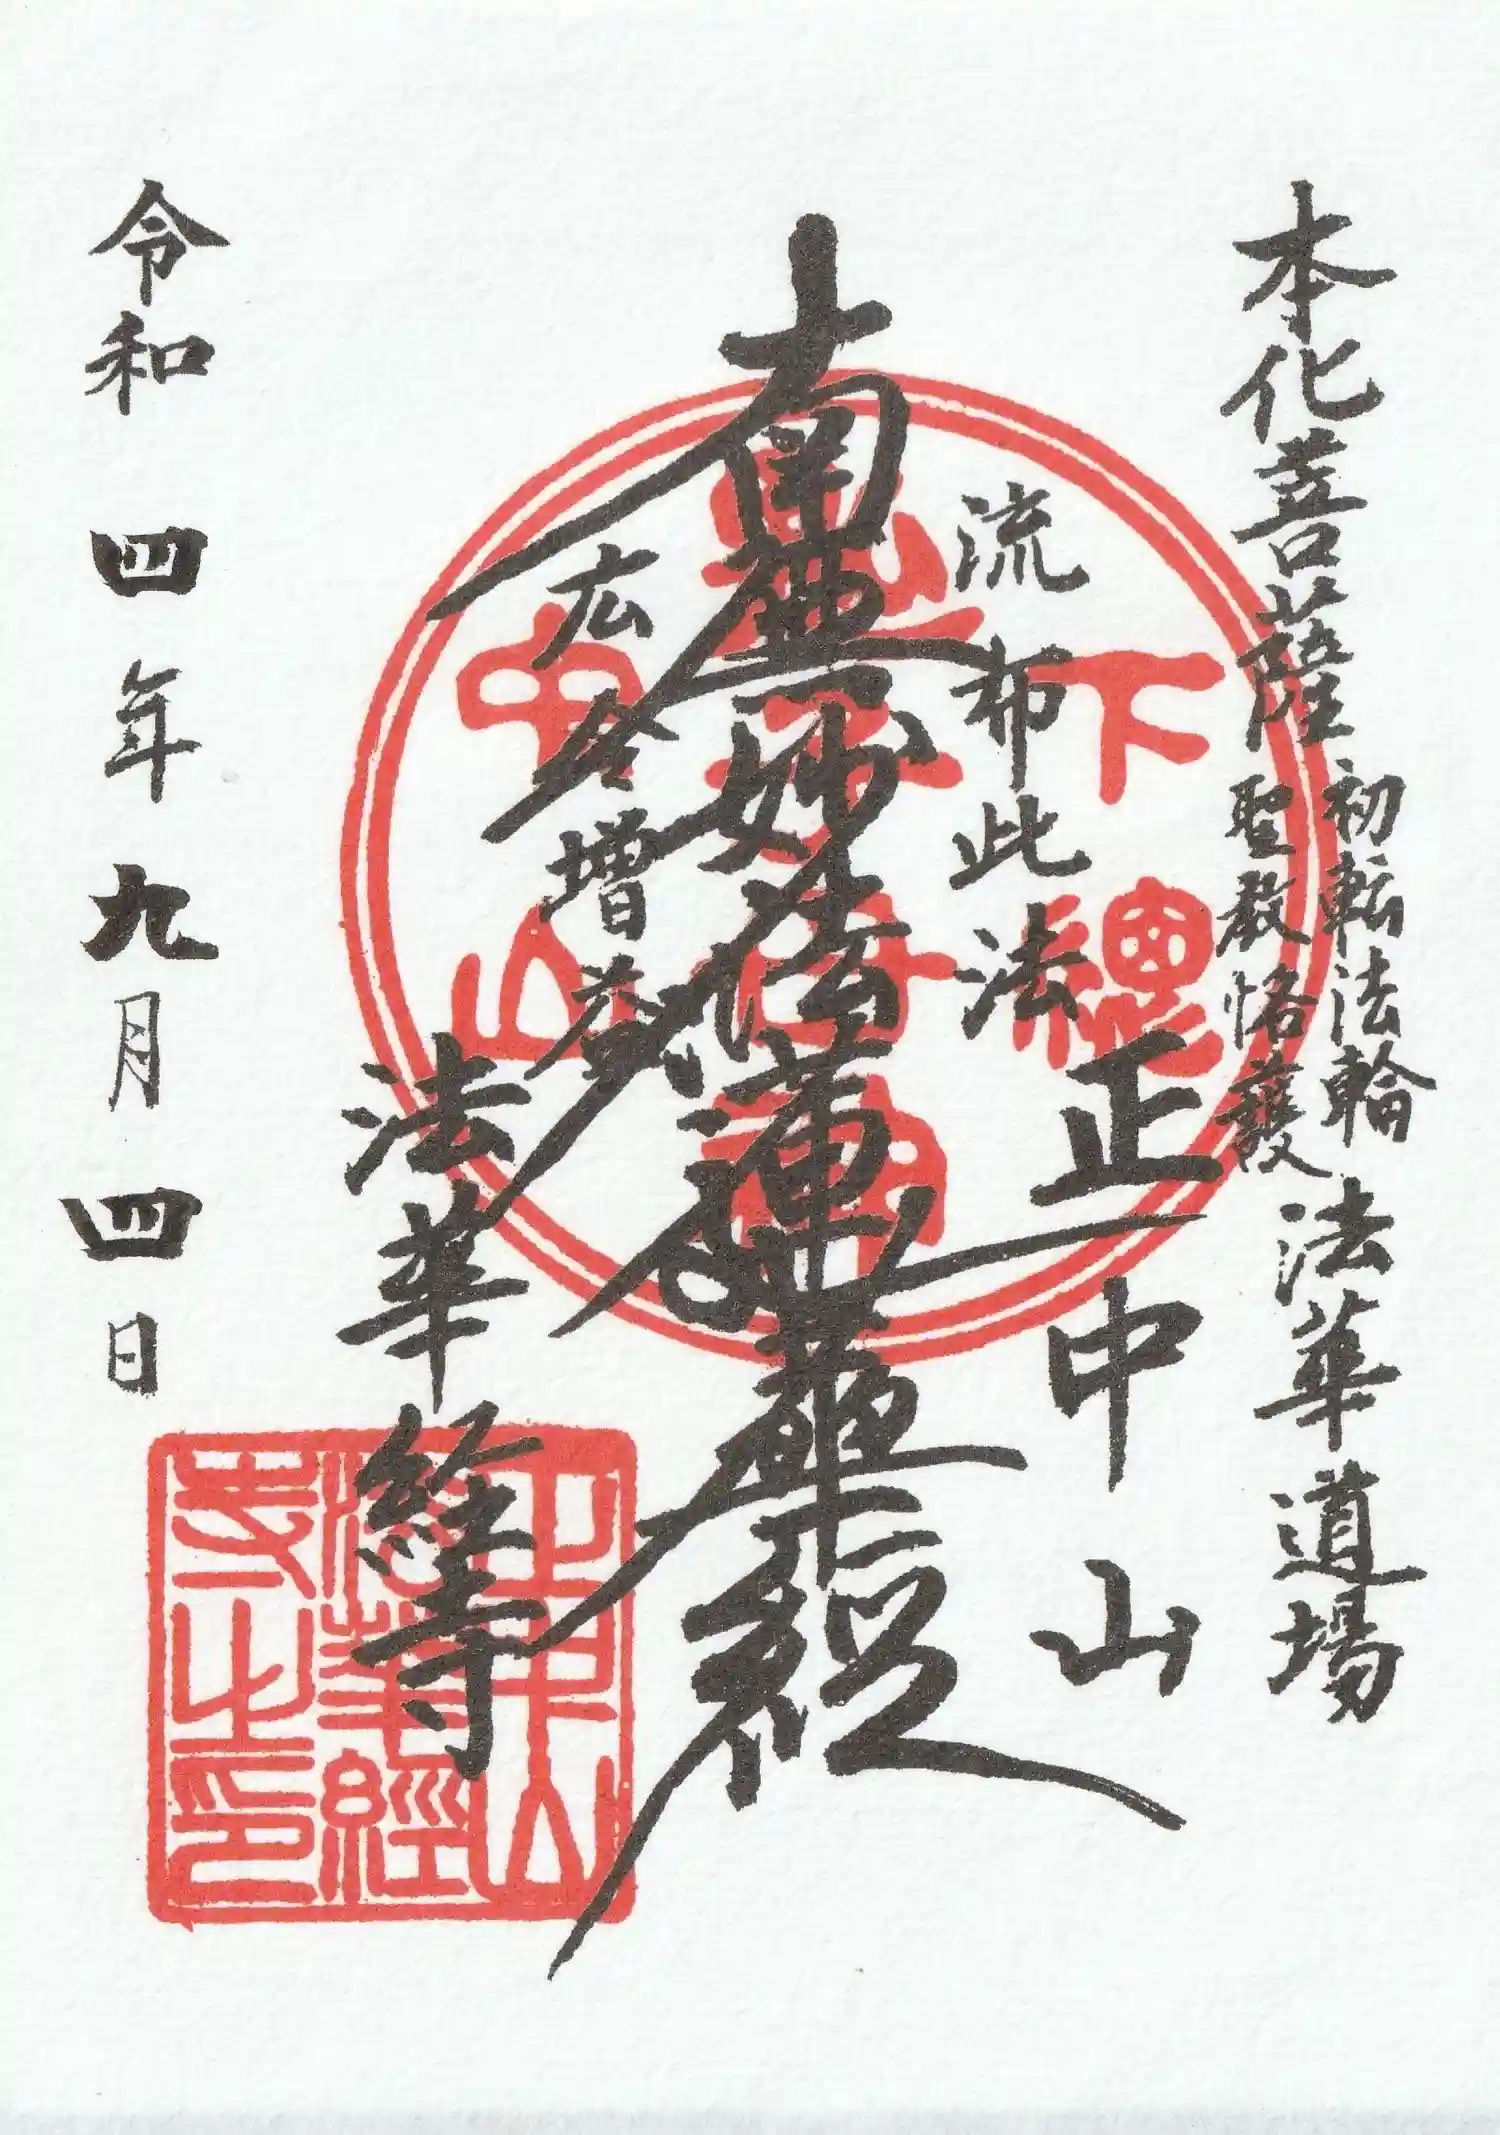 本化菩薩
初転法輪
聖教格護
法華道場
正中山
流布此法
南無妙法蓮華経
広令増益
法華経寺
令和四年九月四日
下總
中山
正中山
法華經
寺之印